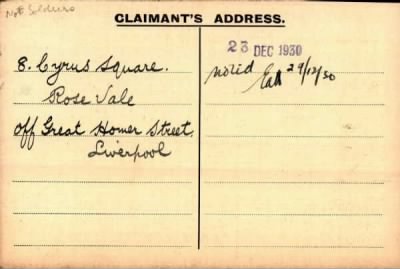 Not Soldiers
CLAIMANT'S ADDRESS.
8. Cyrus Square.
Rose Vale
off Great Homer Street,
Liverpool
23 DEC 1930
Noted
29/12/30